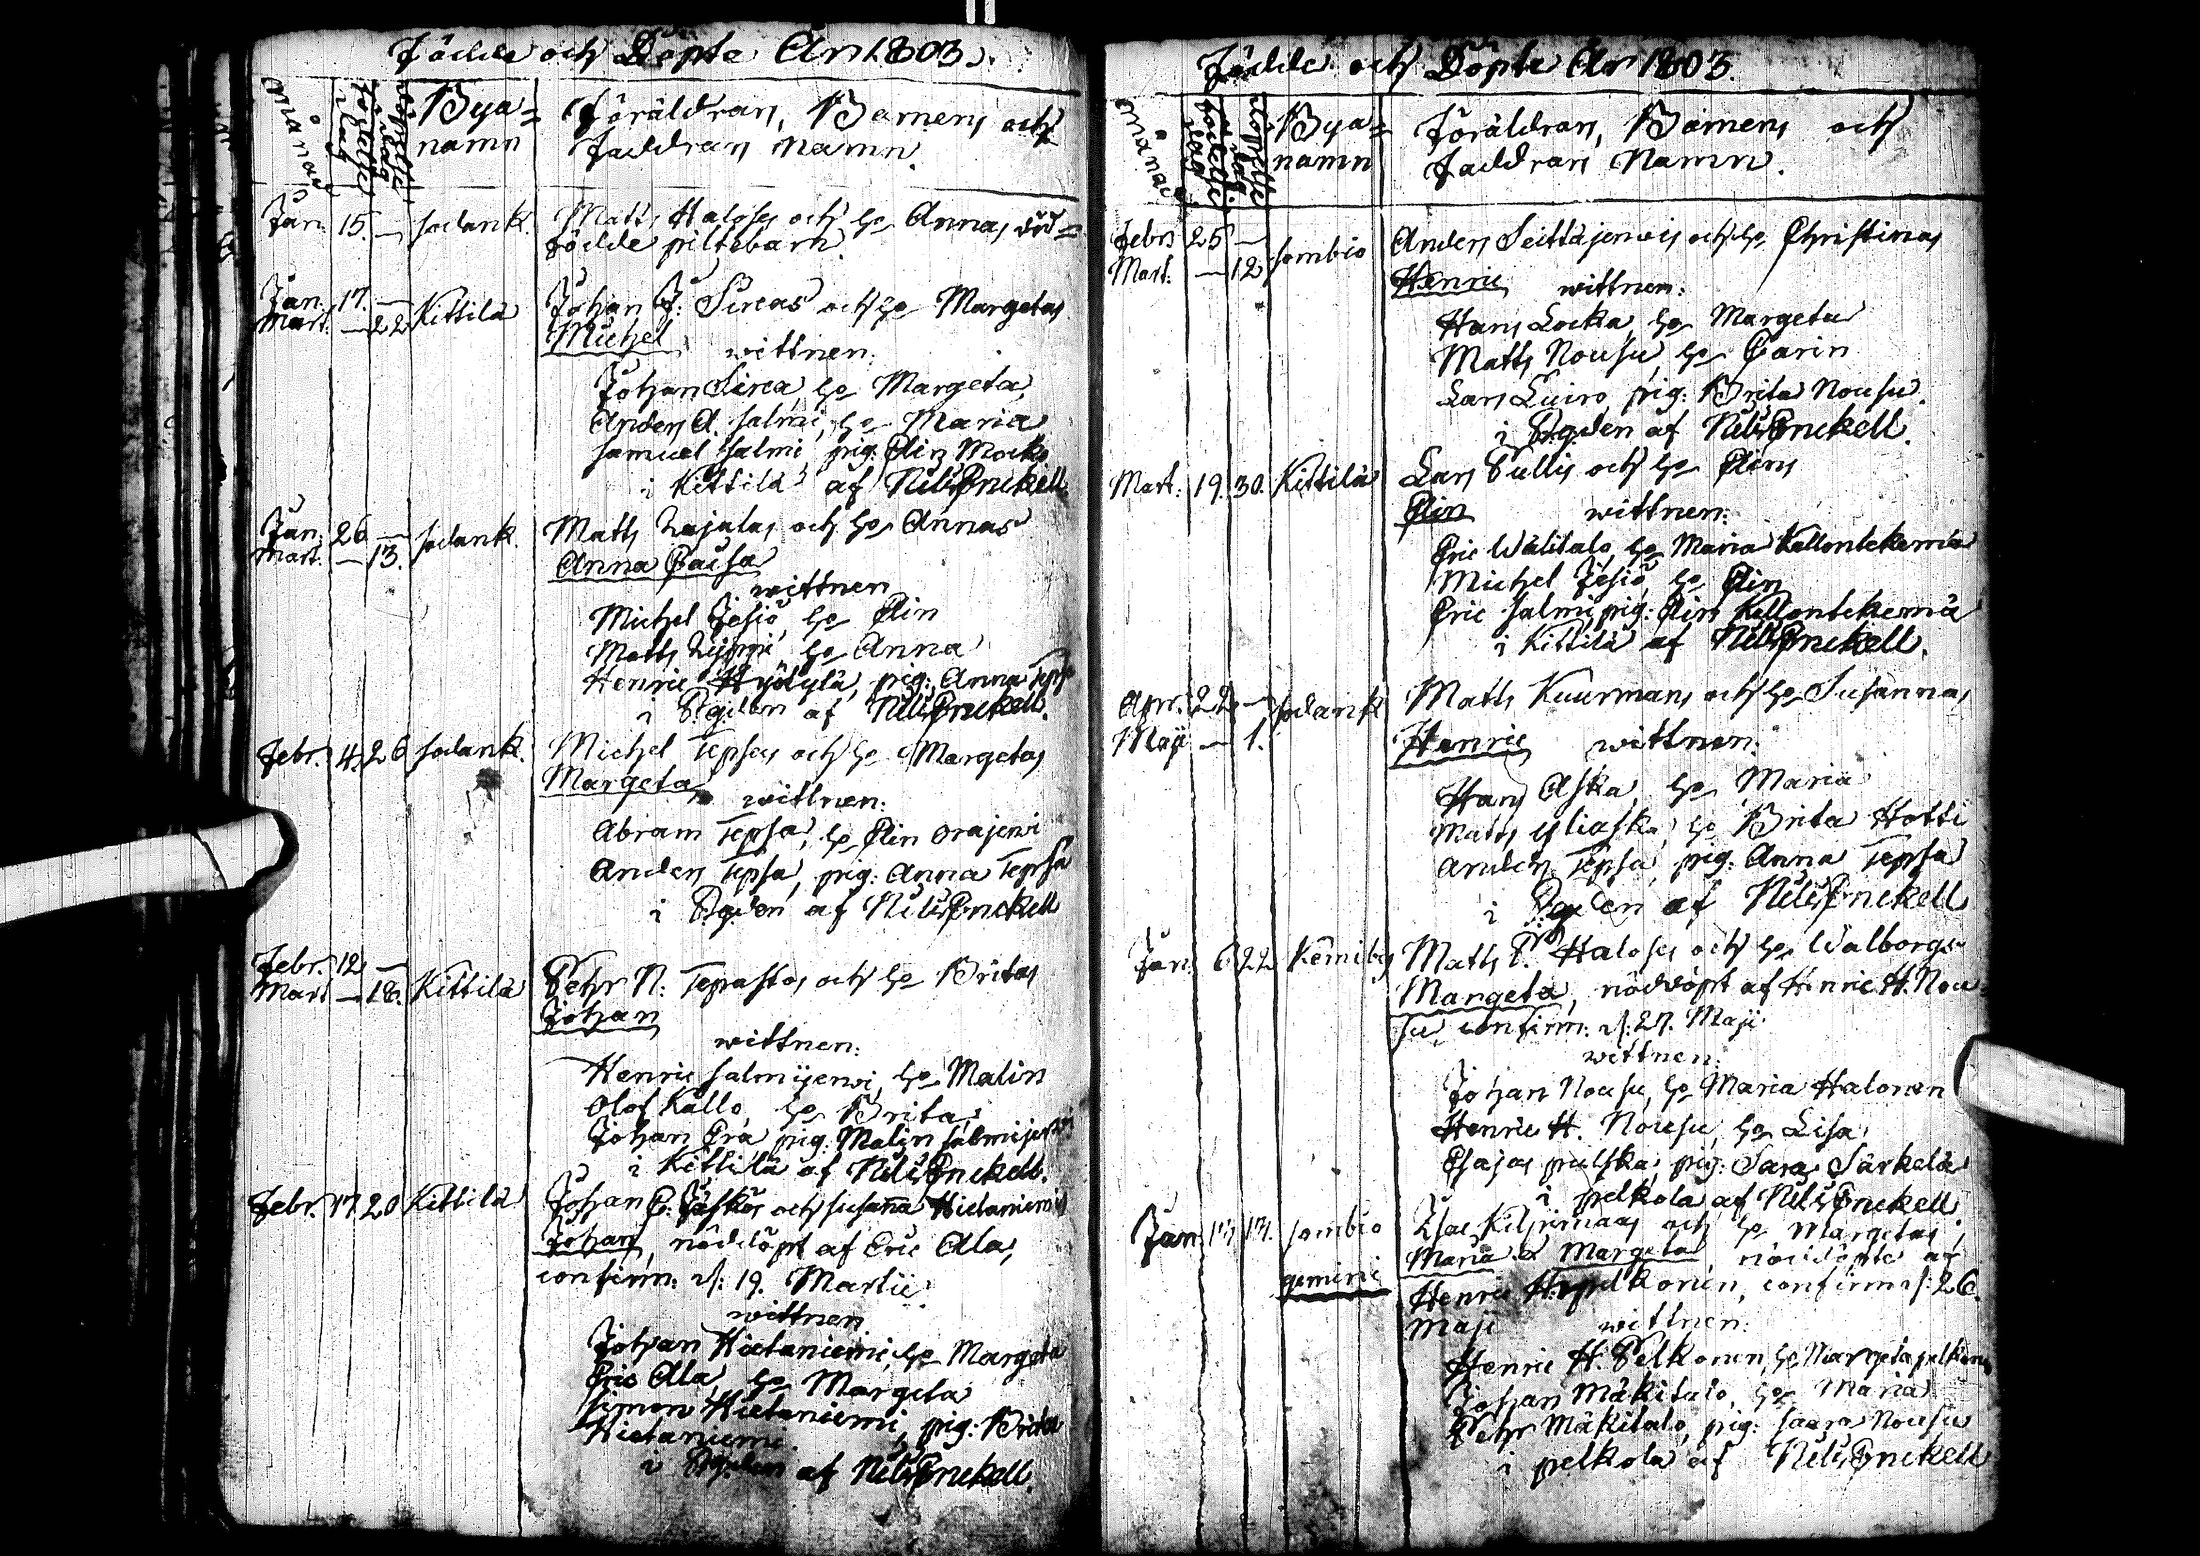 Födde och Döpte År 1803.
Månad
Födelse dag
Döpelse dag
Bya=
namn
Föräldrars, Barnens och
Faddrars Namn.
Jan: 15. — sodank. Matts Haloses och h:o Annas död=
födde piltebarn.
Jan: 17. —
Mart: — 22 Kittilä Johan J: Sircas och h:o Margetas
Michel wittnen:
Johan Sirca, h:o Margeta,
Anders A. salmi, h:o Maria
samuel salmi, pig: Elin
i Kittilä af Nils Enckell.
Jan: 26 — sodank.
Mart. — 13. Matts Lajulas och h:o Annas
Anna Caisa
wittnen
Michel Jesiö, h:o Elin
Matts h:o Anna
Henric pig: Anna Tepsa
i S:gden af Nils Enckell.
Febr. 4. 26 sodank. Michel Tepsas och h:o Margetas
Margeta wittnen:
Abram Tepsa, h:o Elin orajerwi
Anders Tepsa, pig: Anna Tepsa
i S:gden af Nils Enckell
Febr. 12. —
Mart — 18. Kittilä Pehr N: Tepastos och h:o Britas
Johan
wittnen:
Henric salmijerwi, h:o Malin
Olof Kallo, h:o Brita,
Johan Erä pig: Malin salmijerwi
i Kittilä af Nils Enckell.
Febr. 17. 20 Kittilä Johan E: Jäskös och susanna Hietaniemis
Johan, nöddöpt af Eric Ala,
confirm: d: 19. Martii
wittnen
Johan Hietaniemi, h:o Margeta
Eric Ala, h:o Margeta
simon Hietaniemi, pig: Brita
Hietaniemi.
i S:gden af Nils Enckell.
Födde och Döpte År 1803.
Månad
Födelse dag
Döpelse dag
Bya=
namn
Föräldrars, Barnens och
Faddrars Namn.
Febr 25 —
Mart. — 12 sombio Anders Seittäjerwis och h:o Christinas
Henric wittnen:
Hans Locka, h:o Margeta
Matts Nousu, h:o Carin
Lars Luiro, pig: Brita Nousu.
i S:gden af Nils Enckell.
Mart: 19. 30. Kittilä Lars Pullis och h:o Elins
Elin wittnen:
Eric Wälitalo, h:o Maria Kallontekemä
Michel Jesiö, h:o Elin
Eric salmi, pig: Elin Kallontekemä
i Kittilä af Nils Enckell.
Apr. 22. — sodank
Maji — 1. Matts Kuurmans och h:o Susannas
Henric wittnen:
Hans Aska h:o Maria
Matts yliaska, h:o Brita Hotti
Anders Tepsa, pig: Anna Tepsa
i S:gden af Nils Enckell
Jan: 6 22 Kemiby Matts P. Haloses och h:o Walborgs
Margeta, nöddöpt af Henric H. Nou=
su, confirm: d: 27. Maji
wittnen:
Johan Nousu, h:o Maria Halonen
Henric H. Nousu, h:o Lisa,
Esajas pulska, pig: Sara Särkelä
i pelkola af Nils Enckell
Jan 13. 13. sombio Isac Kilpimaas och h:o Margetas
gemini Maria & Margeta nöddöpte af
Henric H. pelkonen, confirm d: 26.
Maji wittnen:
Henric H. Pelkonen, h:o Margeta pelkonen
Johan Mäkitalo, h:o Maria
Pehr Mäkitalo, pig: saara Nousu
i pelkola af Nils Enckell